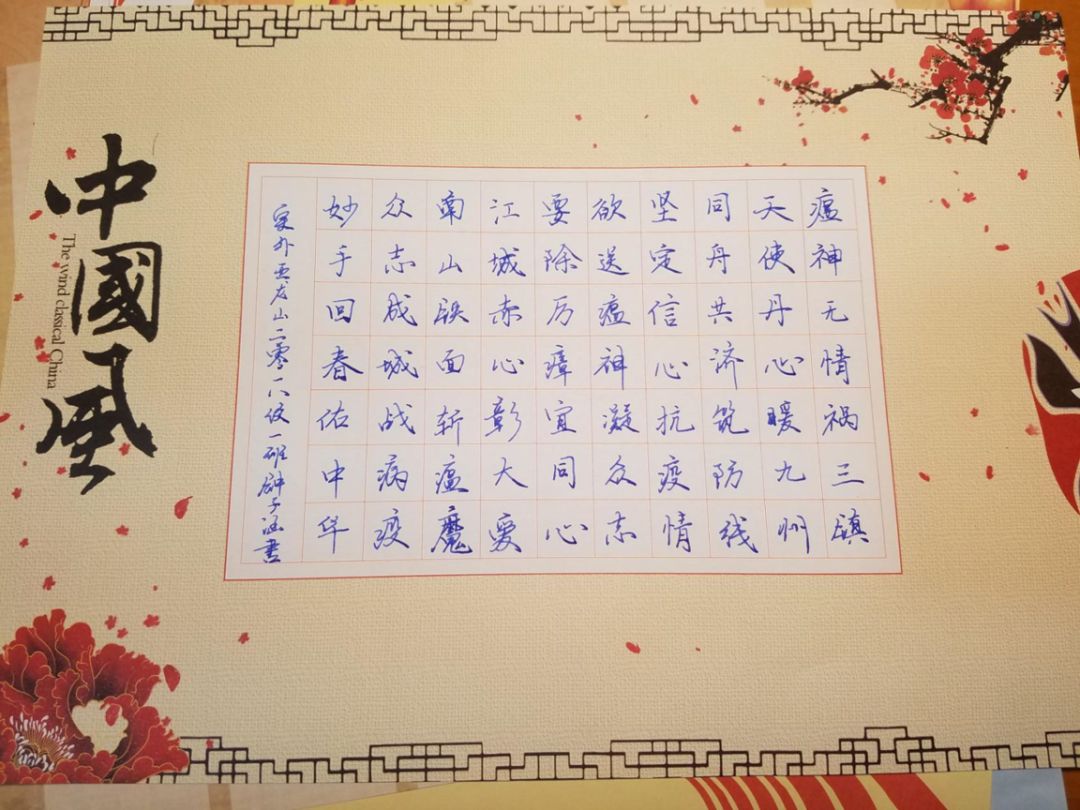 瘟神无情祸三镇
天使丹心暖九州
同舟共济筑防线
坚定信心抗疫情
欲送瘟神凝众志
要除厉瘴宜同心
江城赤心彰大爱
南山铁面斩瘟魔
众志成城战病疫
妙手回春佑中华
实外五龙山二零一八级一班钟子涵書
中國風
The wind classical China